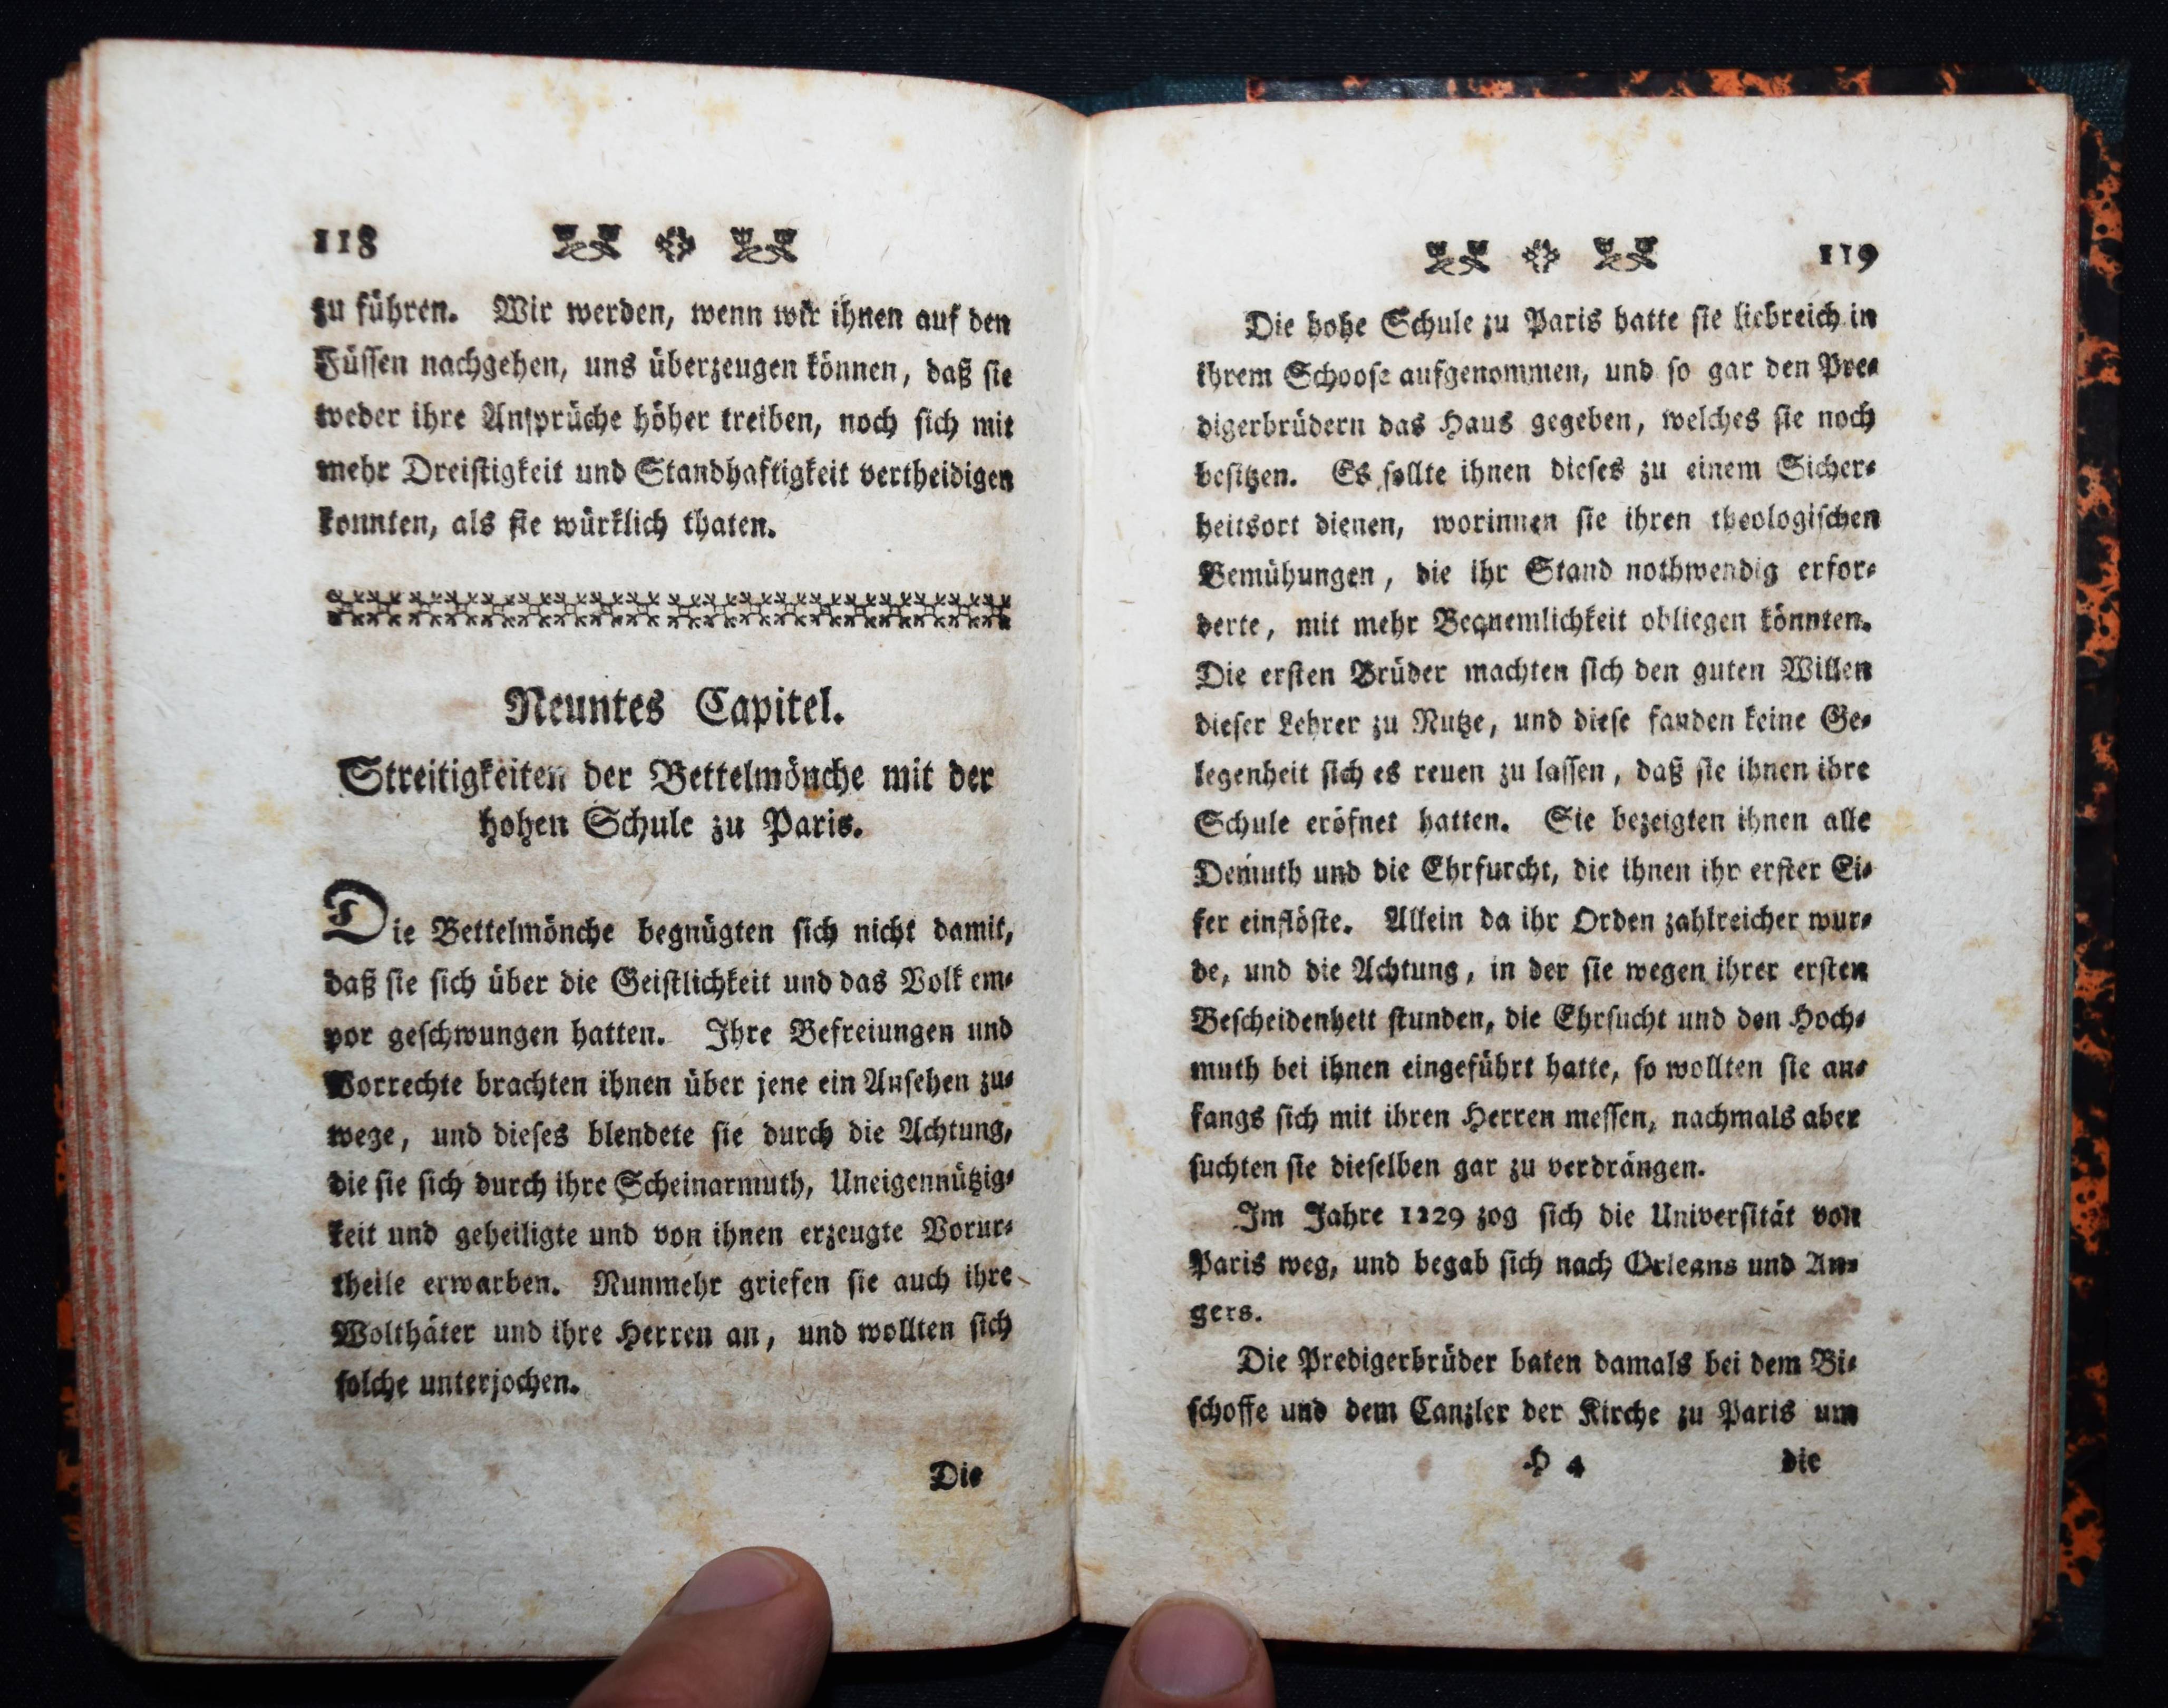 118
zu führen. Wir werden, wenn wir ihnen auf den
Füssen nachgehen, uns überzeugen können, daß sie
weder ihre Ansprüche höher treiben, noch sich mit
mehr Dreistigkeit und Standhaftigkeit vertheidigen
konnten, als sie würklich thaten.
Neuntes Capitel.
Streitigkeiten der Bettelmönche mit der
hohen Schule zu Paris.
Die Bettelmönche begnügten sich nicht damit,
daß sie sich über die Geistlichkeit und das Volk em-
por geschwungen hatten. Ihre Befreiungen und
Vorrechte brachten ihnen über jene ein Ansehen zu-
wege, und dieses blendete sie durch die Achtung,
die sie sich durch ihre Scheinarmuth, Uneigennützig-
keit und geheiligte und von ihnen erzeugte Vorur-
theile erwarben. Nunmehr griefen sie auch ihre
Wolthäter und ihre Herren an, und wollten sich
solche unterjochen.
Die
119
Die hohe Schule zu Paris hatte sie liebreich in
ihrem Schoose aufgenommen, und so gar den Pre-
digerbrüdern das Haus gegeben, welches sie noch
besitzen. Es sollte ihnen dieses zu einem Sicher-
heitsort dienen, worinnen sie ihren theologischen
Bemühungen, die ihr Stand nothwendig erfor-
derte, mit mehr Bequemlichkeit obliegen könnten.
Die ersten Brüder machten sich den guten Willen
dieser Lehrer zu Nutze, und diese fanden keine Ge-
legenheit sich es reuen zu lassen, daß sie ihnen ihre
Schule eröfnet hatten. Sie bezeigten ihnen alle
Demuth und die Ehrfurcht, die ihnen ihr erster Ei-
fer einflöste. Allein da ihr Orden zahlreicher wur-
de, und die Achtung, in der sie wegen ihrer ersten
Bescheidenheit stunden, die Ehrsucht und den Hoch-
muth bei ihnen eingeführt hatte, so wollten sie an-
fangs sich mit ihren Herren messen, nachmals aber
suchten sie dieselben gar zu verdrängen.
Im Jahre 1229 zog sich die Universität von
Paris weg, und begab sich nach Orleans und An-
gers.
Die Predigerbrüder baten damals bei dem Bi-
schoffe und dem Canzler der Kirche zu Paris um
H 4 die